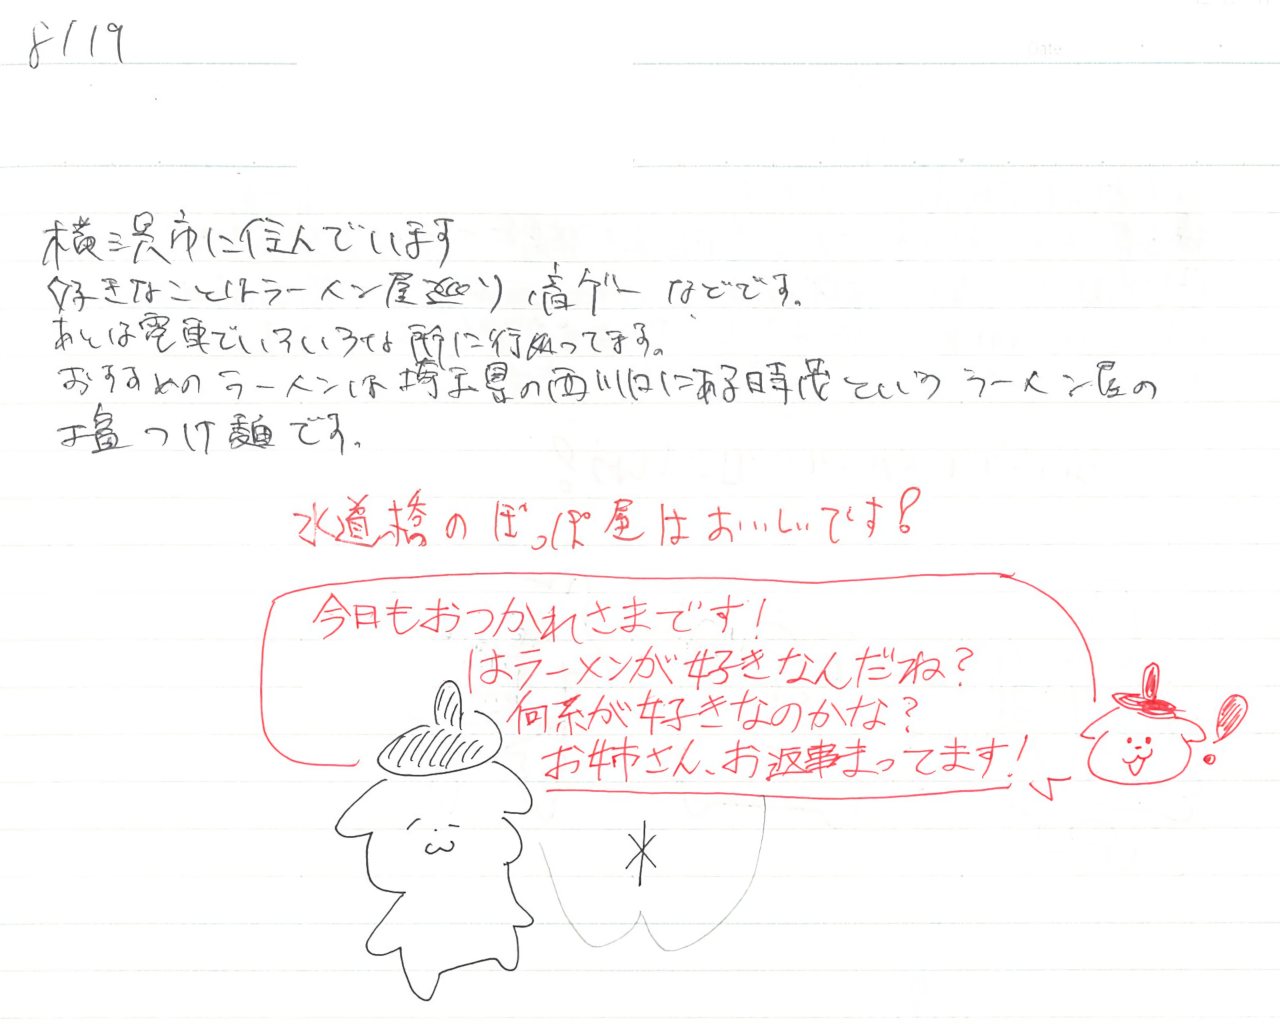 8/19
横浜市に住んでいます
好きなことはラーメン屋巡り 音ゲー などです。
あとは電車でいろいろな所に行ってます。
おすすめのラーメンは埼玉県の西川口にある時茂というラーメン屋の
塩つけ麺です。
水道橋のぽっぽ屋はおいしいです!
今日もおつかれさまです!
はラーメンが好きなんだね?
何系が好きなのかな?
お姉さん、お返事まってます!